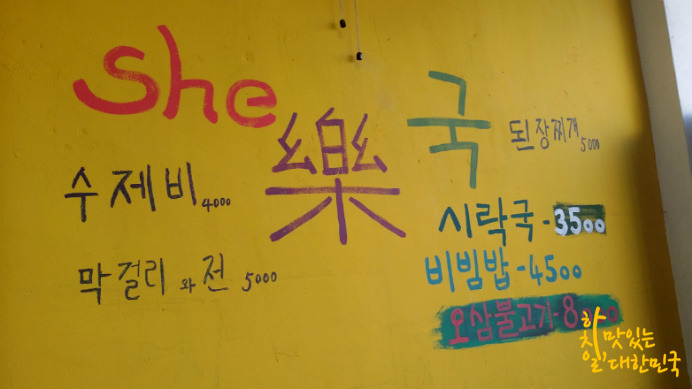 She 樂 국
된장찌개 5000
수제비 4000
시락국 - 3500
막걸리 와 전 5000
비빔밥 - 4500
오삼불고기 - 8000
맛있는
대한민국